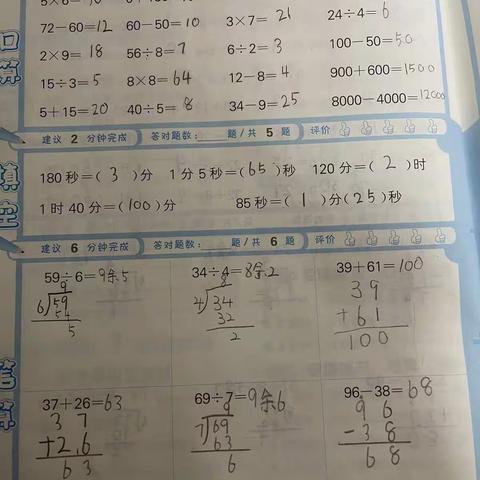 72－60=12 60－50=10 3×7= 21 24÷4=6
2×9= 18 56÷8=7 6÷2=3 100－50=50
15÷3=5 8×8=64 12－8=4 900＋600=1500
5＋15=20 40÷5= 8 34－9=25 8000－4000=12000
口算
建议 2 分钟完成 答对题数： 题/共 5 题 评价
180秒=( 3 )分 1分5秒=(65)秒 120分=( 2 )时
1时40分=(100)分 85秒=( 1 )分(25)秒
填空
建议 6 分钟完成 答对题数： 题/共 6 题 评价
59÷6=9余5 34÷4=8余2 39＋61=100
9 8 39
6 59 4 34 +61
54 32 100
5 2
37＋26=63 69÷7=9余6 96－38=68
37 9 96
+26 7 69 -38
63 63 68
6
笔算